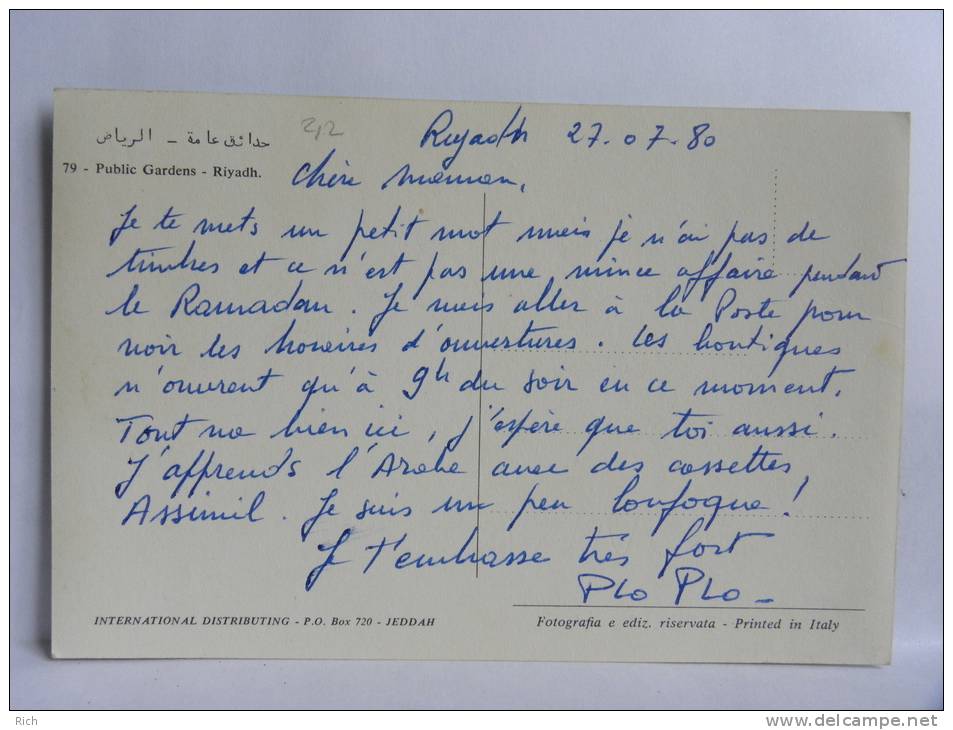 حدائق عامة - الرياض
212
Riyadh 27.07.80
79 - Public Gardens - Riyadh.
Chère maman,
Je te mets un petit mot mais je n'ai pas de
timbres et ce n'est pas une mince affaire pendant
le Ramadan. Je vais aller à la Poste pour
voir les horaires d'ouvertures. Les boutiques
n'ouvrent qu'à 9h du soir en ce moment.
Tout va bien ici, j'espère que toi aussi.
J'apprends l'Arabe avec des cassettes
Assimil. Je suis un peu loufoque!
Je t'embrasse très fort
Plo Plo -
INTERNATIONAL DISTRIBUTING - P.O. Box 720 - JEDDAH
Fotografia e ediz. riservata - Printed in Italy
Rich
www.delcampe.net